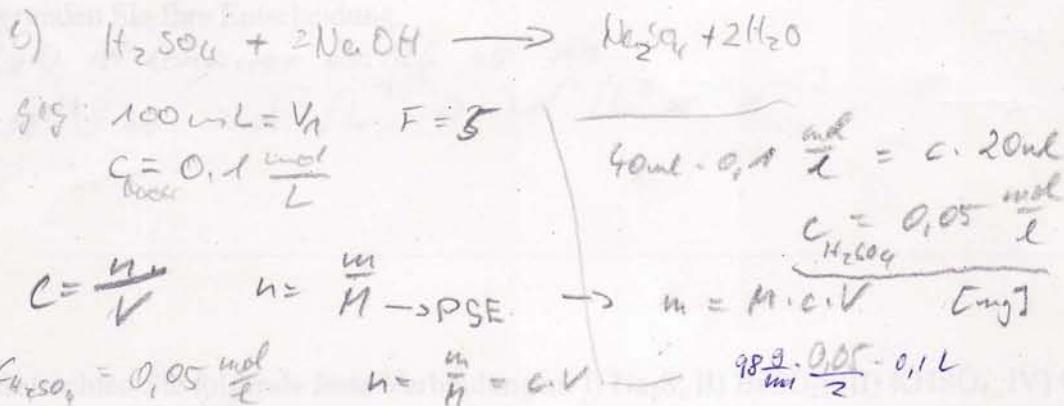 b) H₂SO₄ + 2NaOH ⟶ Na₂SO₄ + 2H₂O
geg: 100 mL = V₁ F = 5
c = 0,1 mol/L
40ml · 0,1 mol/l = c · 20ml
c_H₂SO₄ = 0,05 mol/l
c = n/V n = m/M → PSE → m = M · c · V [mg]
c_H₂SO₄ = 0,05 mol/l n = m/M = c · V 98 g/mol · 0,05/2 · 0,1 L